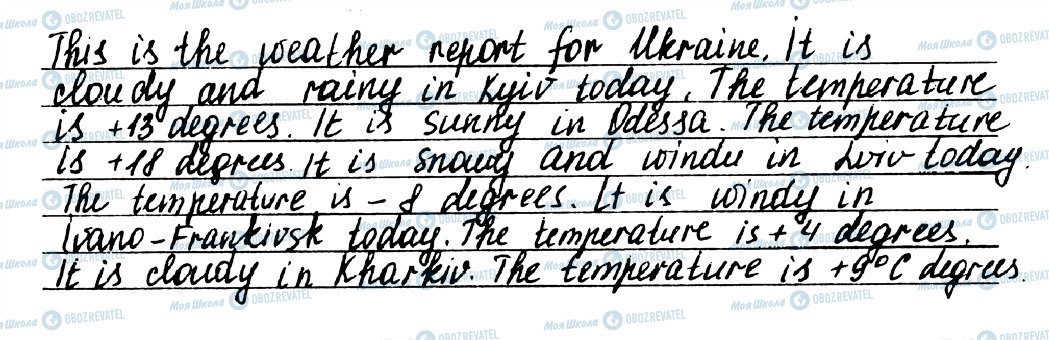 This is the weather report for Ukraine. It is
cloudy and rainy in Kyiv today. The temperature
is +13 degrees. It is sunny in Odessa. The temperature
is +18 degrees. It is snowy and windu in Lviv today.
The temperature is -8 degrees. It is windy in
Ivano-Frankivsk today. The temperature is +4 degrees.
It is cloudy in Kharkiv. The temperature is +9°C degrees.
МояШкола OBOZREVATEL